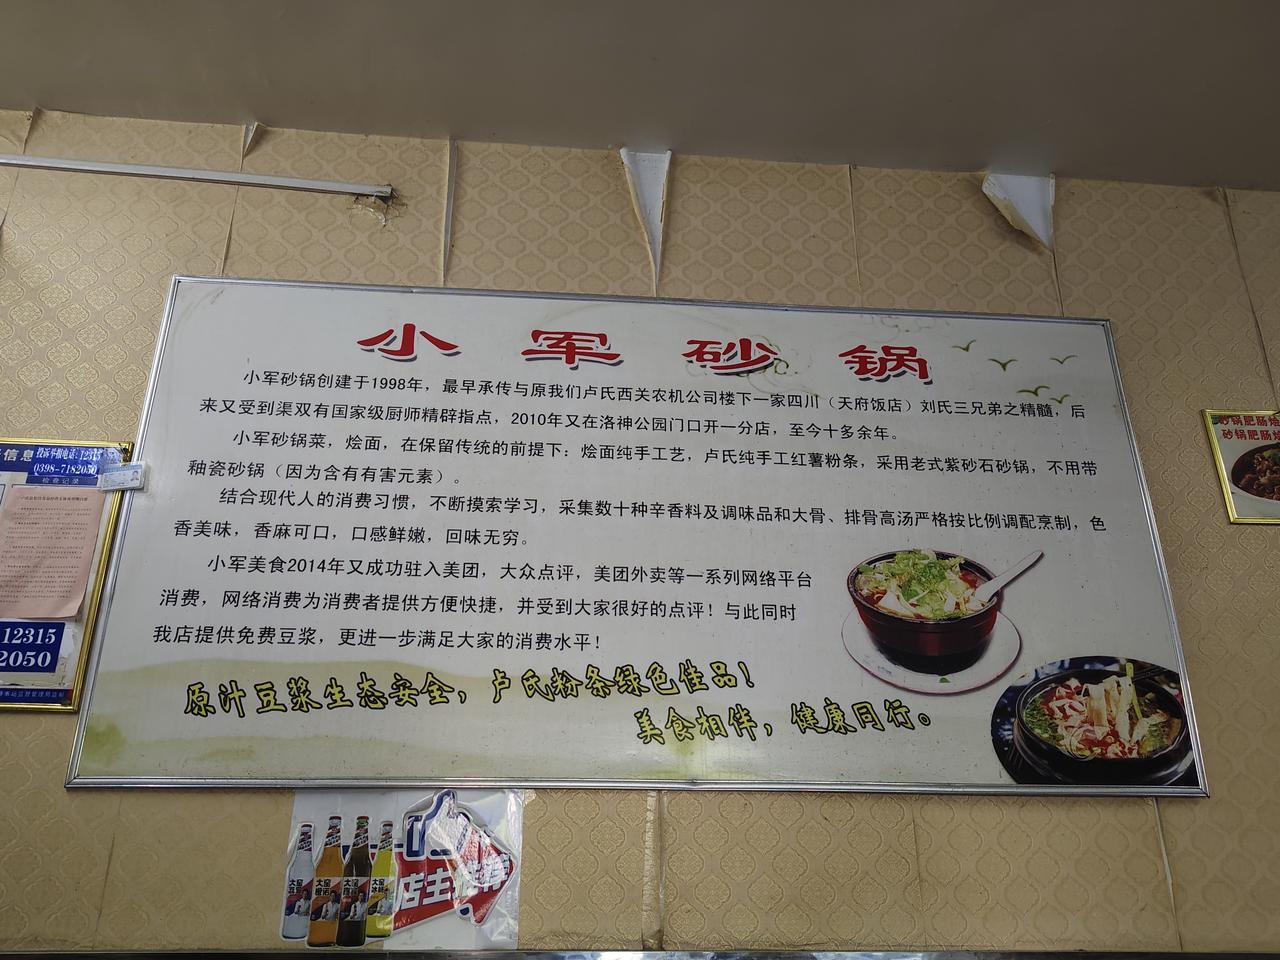 小军砂锅
小军砂锅创建于1998年，最早承传与原我们卢氏西关农机公司楼下一家四川（天府饭店）刘氏三兄弟之精髓，后
来又受到渠双有国家级厨师精辟指点，2010年又在洛神公园门口开一分店，至今十多余年。
小军砂锅菜，烩面，在保留传统的前提下：烩面纯手工艺，卢氏纯手工红薯粉条，采用老式紫砂石砂锅，不用带
釉瓷砂锅（因为含有有害元素）。
结合现代人的消费习惯，不断摸索学习，采集数十种辛香料及调味品和大骨、排骨高汤严格按比例调配烹制，色
香美味，香麻可口，口感鲜嫩，回味无穷。
小军美食2014年又成功驻入美团，大众点评，美团外卖等一系列网络平台
消费，网络消费为消费者提供方便快捷，并受到大家很好的点评！与此同时
我店提供免费豆浆，更进一步满足大家的消费水平！
原汁豆浆生态安全，卢氏粉条绿色佳品！
美食相伴，健康同行。
信息
投诉举报电话：12315
0398-7182050
检查记录
12315
2050
砂锅肥肠烩
砂锅肥肠烩
大窑
大窑
大窑
大窑
店主推荐